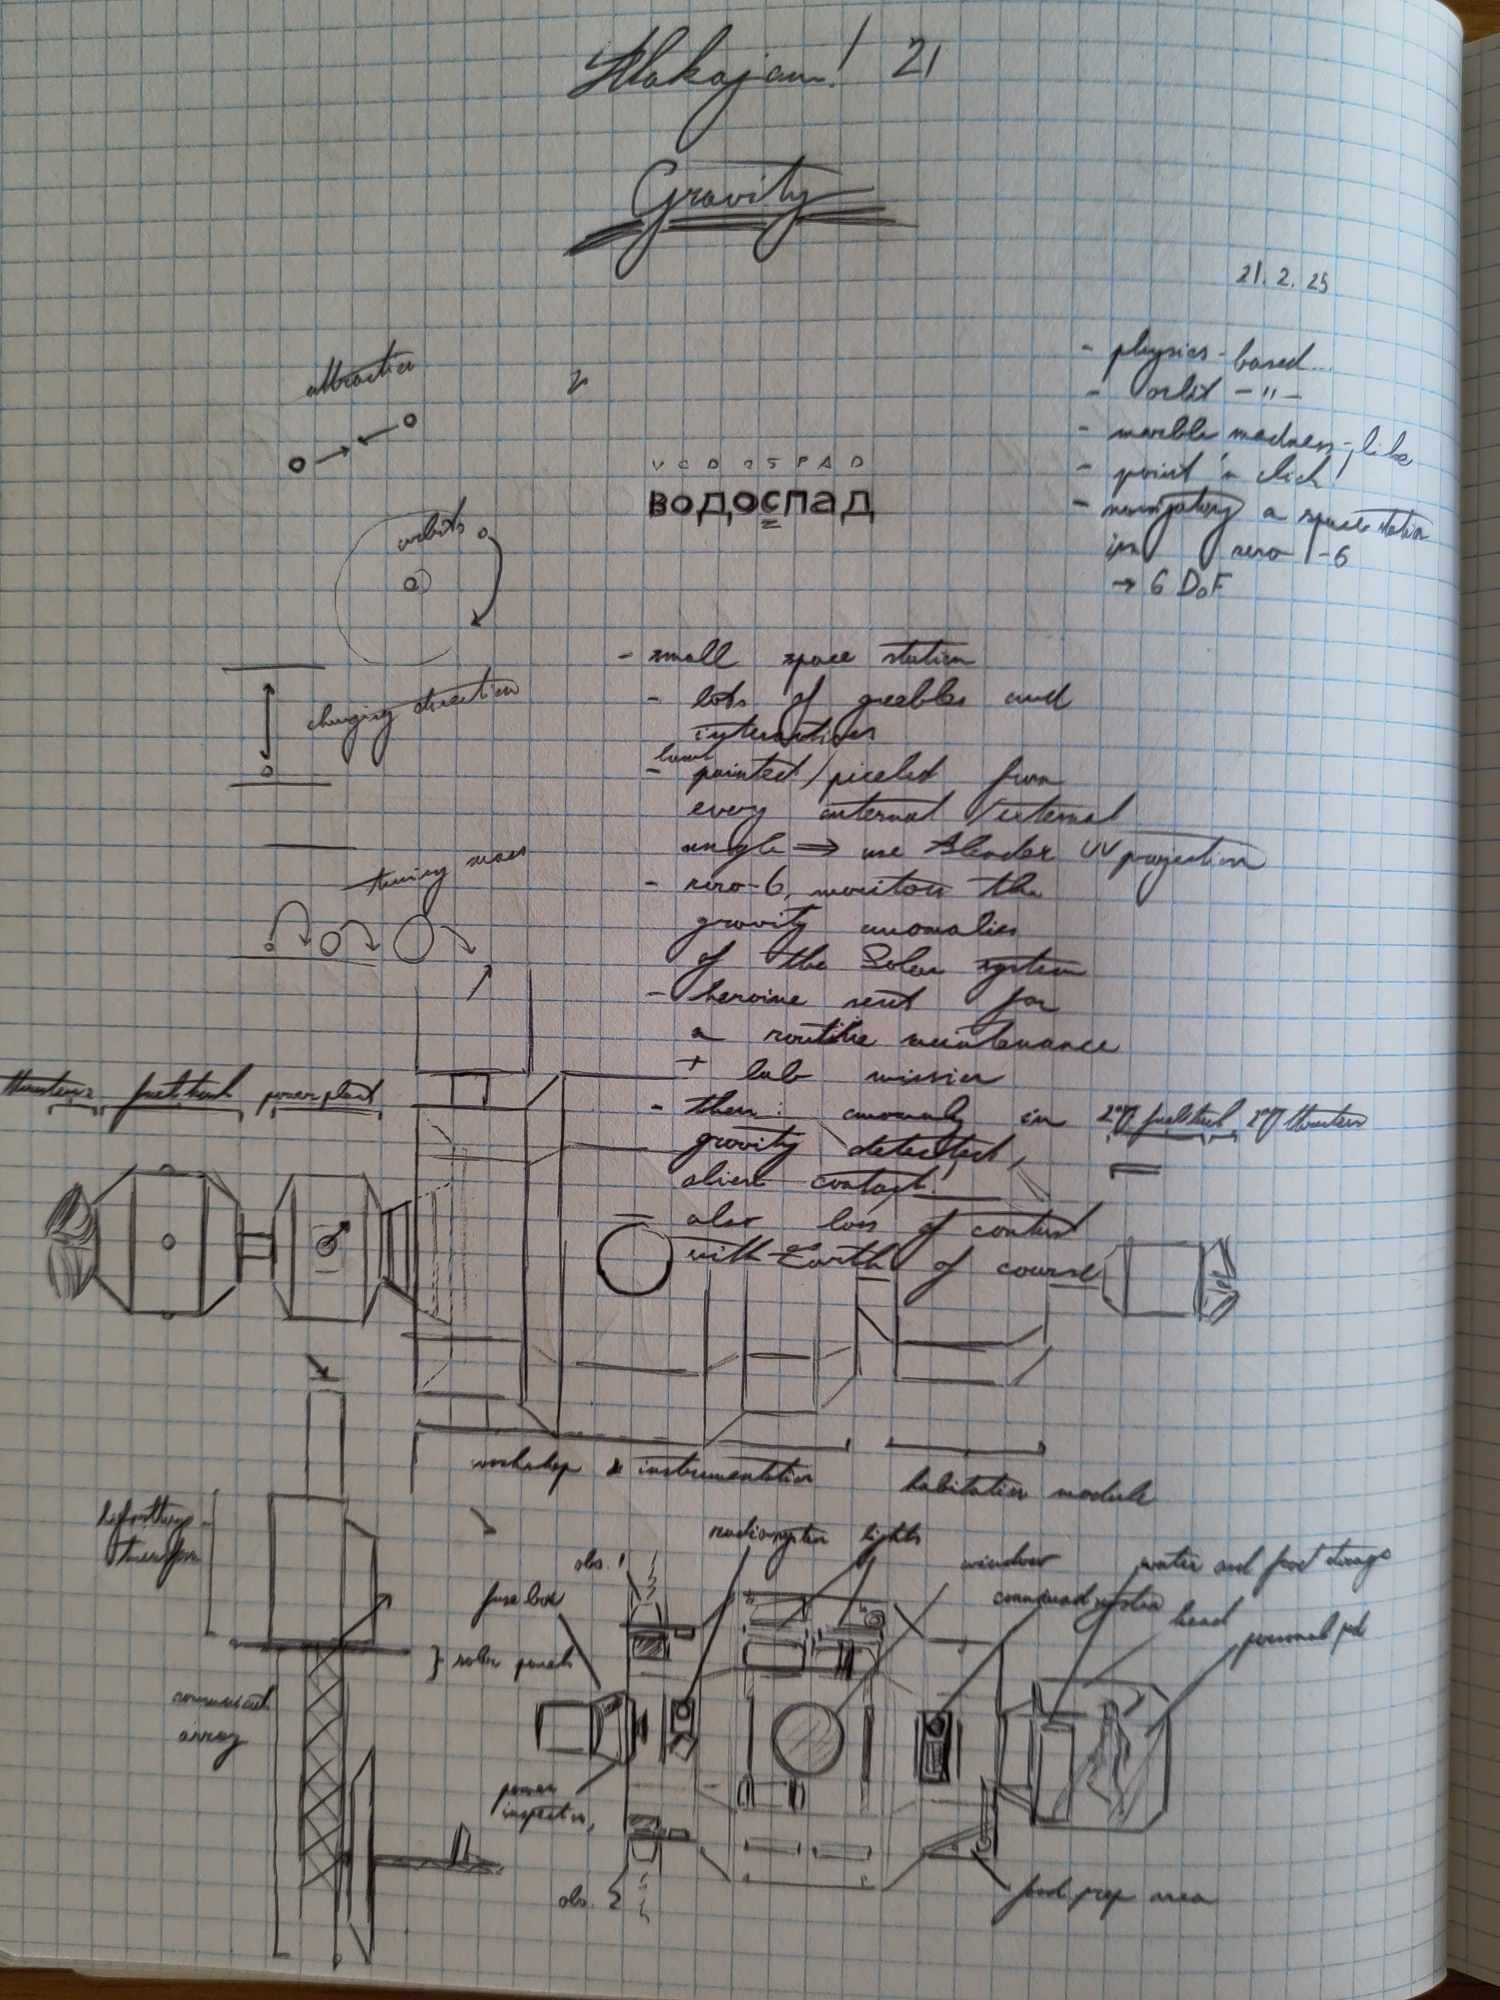 Alakajam! 21
Gravity
21.2.25
attraction
orbits
changing direction
mass
- physics-based...
- orbit -"-
- marble madness-like
- point'n click!
- navigating a space station
in zero-G
→ 6 DoF
V O D O S P A D
водоспад
- small space station
- lots of greebles and
interactives
- hand painted/pixeled from
every internal/external
angle ⇒ use Blender UV projection
- zero-G, monitors the
gravity anomalies
of the Solar system
- heroine sent for
a routine maintenance
+ lab mission
- then: anomaly in
gravity detected,
alien contact!
also loss of contact
with Earth of course
thrusters fuel tank power plant
fuel tank thrusters
workshop & instrumentation
habitation module
solar panels
array
obs. 1
fuse box
lights
window
command system
water and food storage
head
personal
power
obs. 2
food prep area